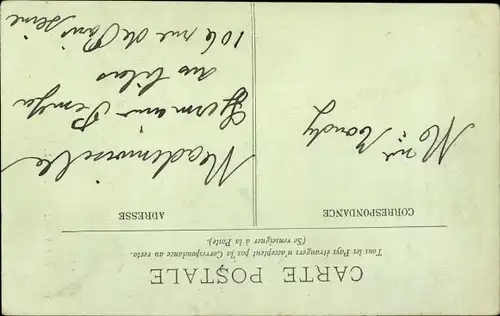 CARTE POSTALE
Tous les Pays étrangers n'acceptent pas la Correspondance au recto.
(Se renseigner à la Poste).
CORRESPONDANCE
ADRESSE
Mademoiselle
Germaine
aux Lilas
106 rue de Paris
Seine